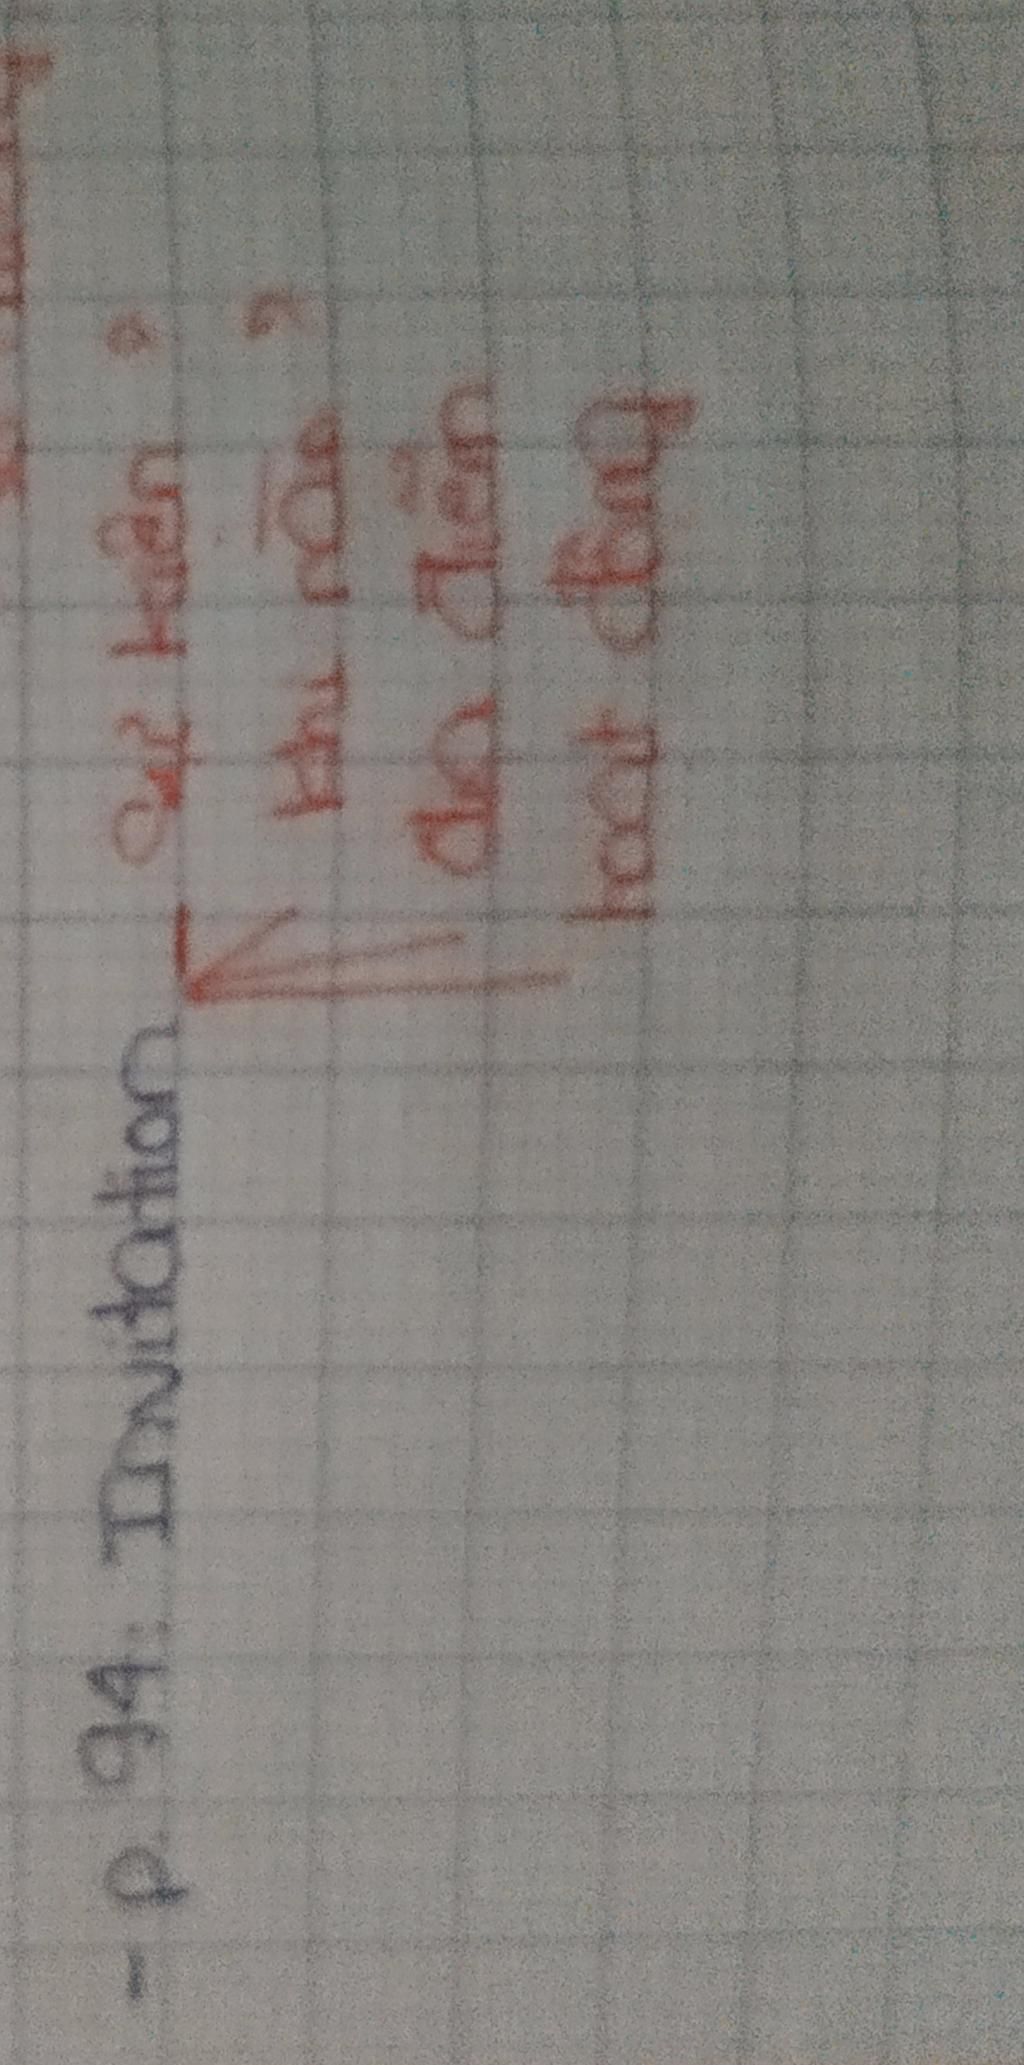 - p. 94: Invitation
sự kiện
khi nào
địa điểm
hoạt động